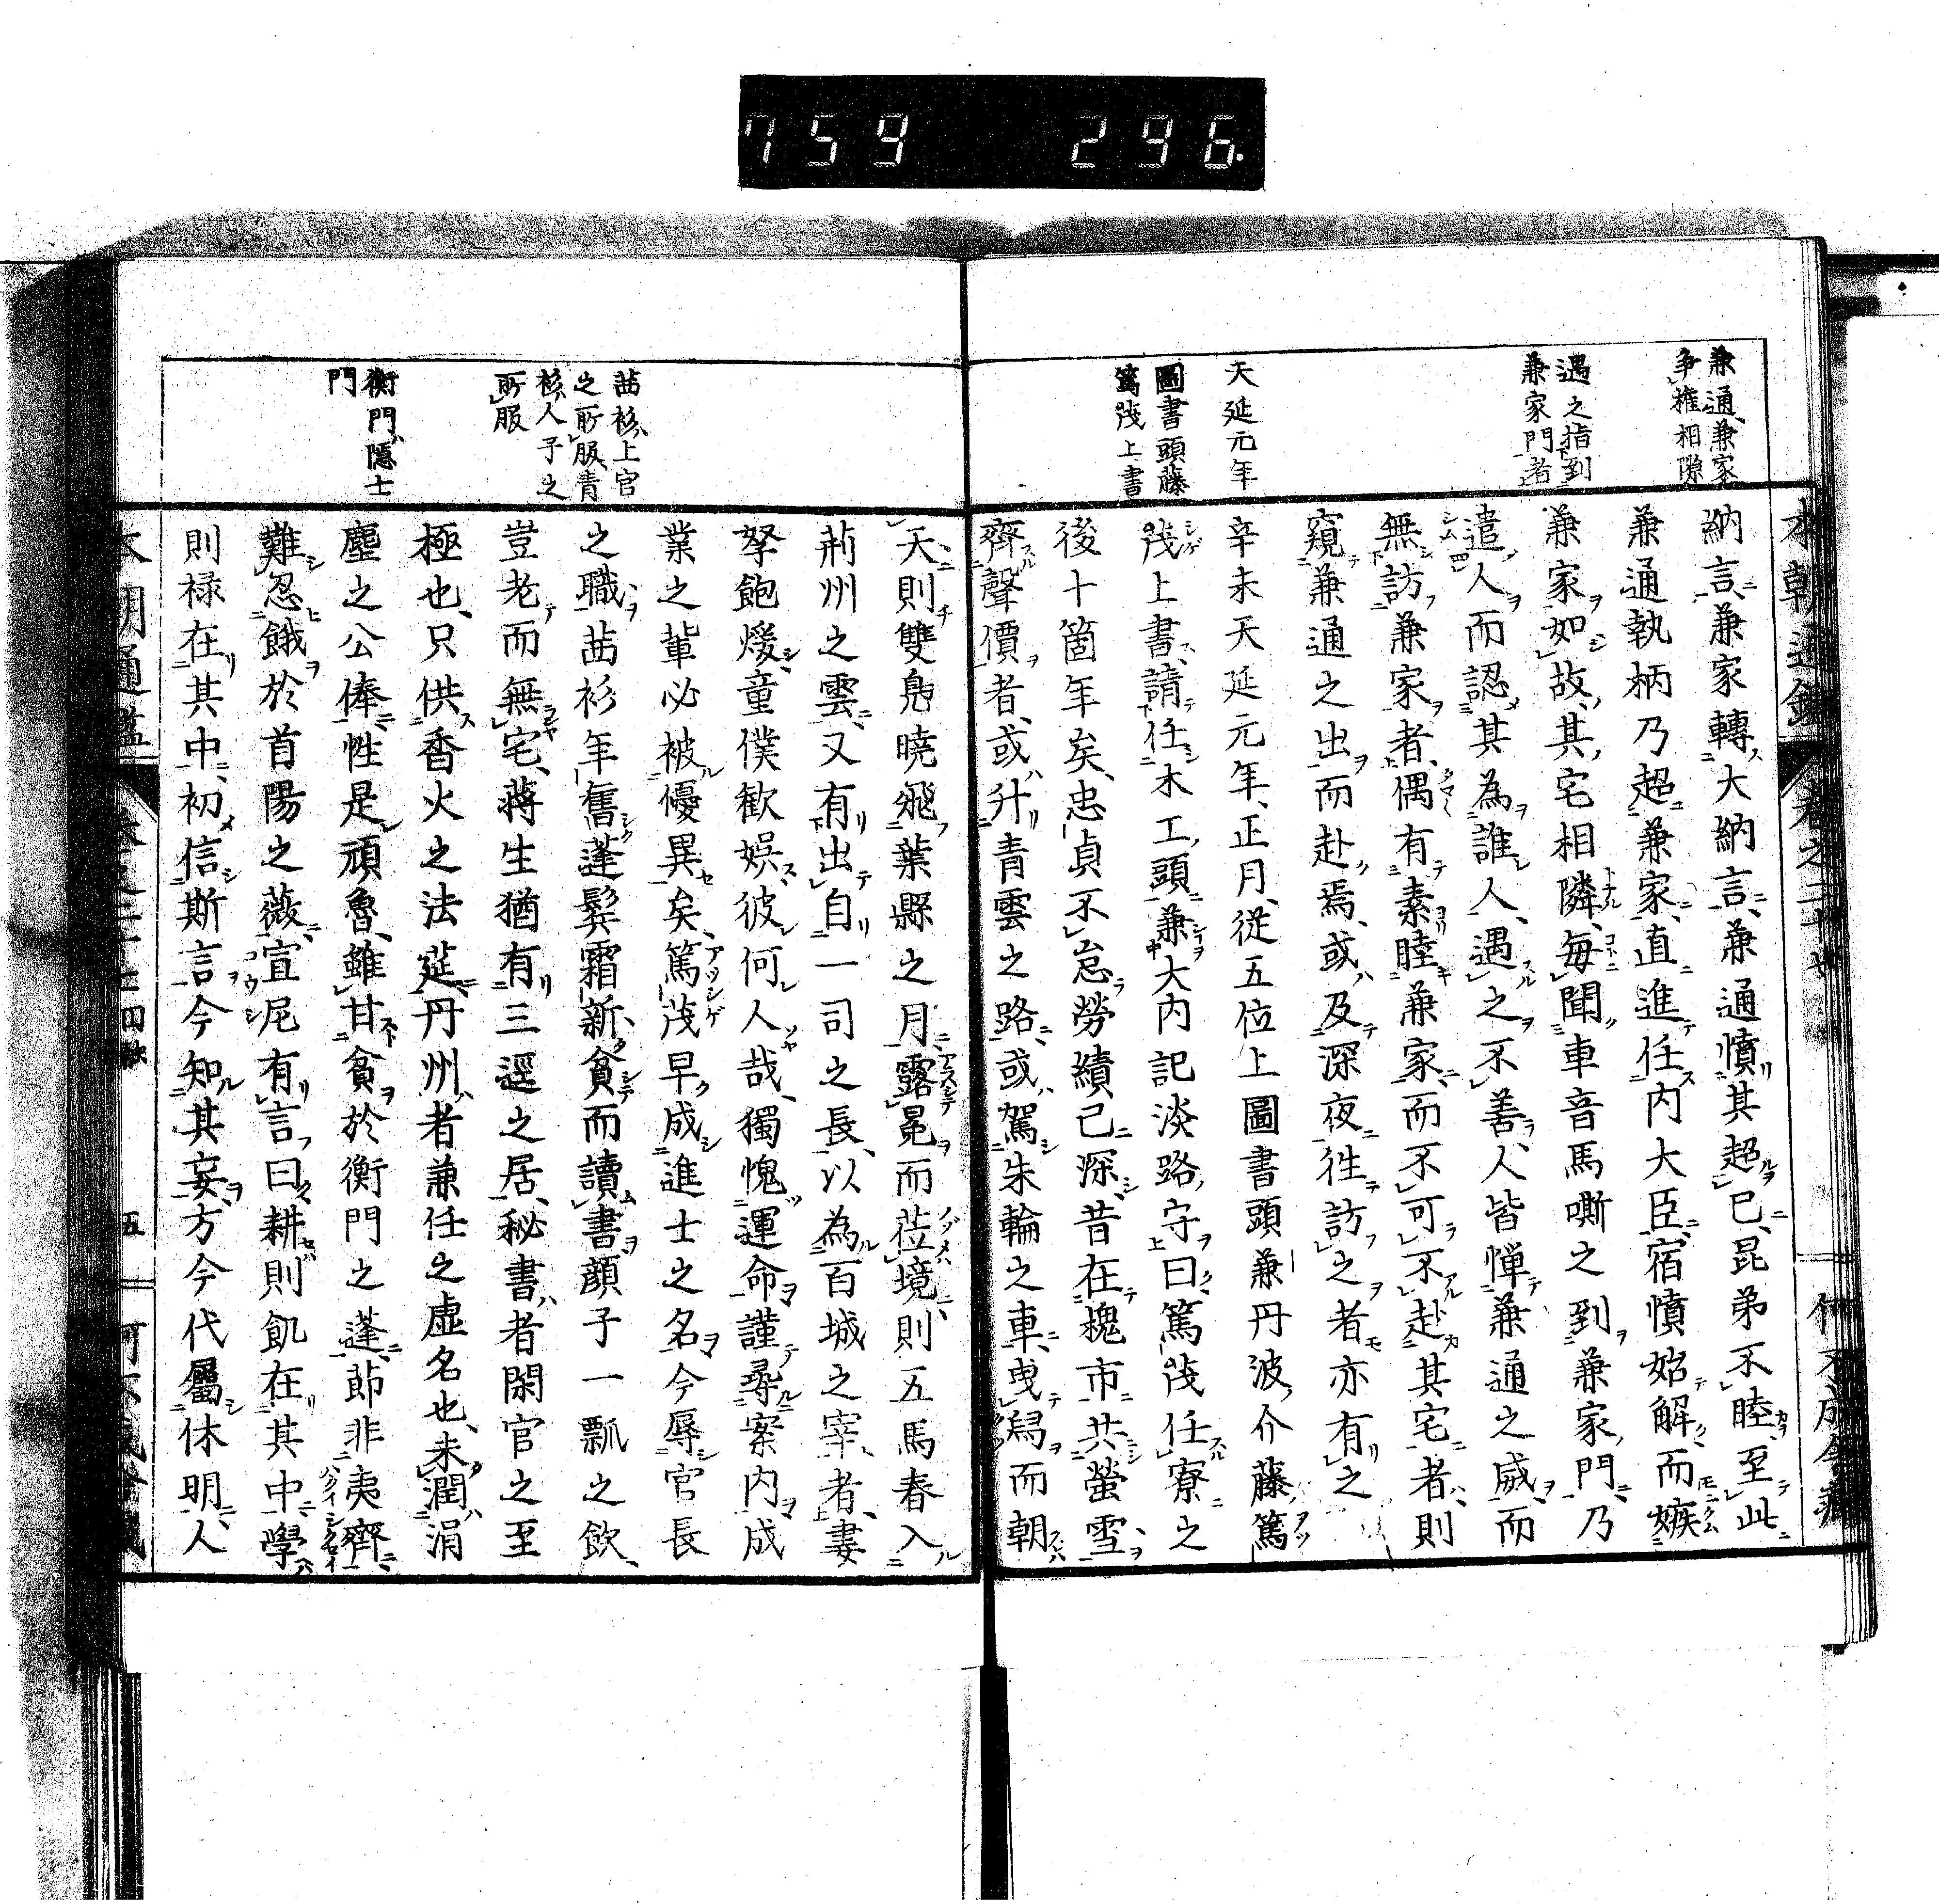 759 296.
兼通、兼家
争權相隙
遇之指到
兼家門者
天延元年
圖書頭藤
篤茂上書
納言、兼家轉大納言、兼通憤其超已、昆弟不睦、至此
兼通執柄乃超兼家、直進任内大臣、宿憤始解而嫉
兼家如故、其宅相隣、毎聞車音馬嘶之到兼家門、乃
遣人而認其為誰人、遇之不善、人皆憚兼通之威、而
無訪兼家者、偶有素睦兼家、而不可不赴其宅者、則
窺兼通之出而赴焉、或及深夜往訪之者亦有之
辛未天延元年、正月、從五位上圖書頭兼丹波介藤篤
茂上書、請任木工頭兼大内記淡路守曰、篤茂任寮之
後十箇年矣、忠貞不怠勞績已深、昔在槐市共螢雪、
齊聲價者、或升青雲之路、或駕朱輪之車、曳舄而朝
天則雙鳧曉飛葉縣之月、露冕而莅境則五馬春入
荊州之雲、又有出自一司之長、以為百城之宰者、妻
孥飽煖、童僕歡娯、彼何人哉、獨愧運命謹尋案内成
業之輩必被優異矣、篤茂早成進士之名今辱官長
之職、茜衫年舊蓬鬢霜新、貧而讀書顔子一瓢之飲、
豈老而無宅、蒋生猶有三逕之居、秘書者閑官之至
極也、只供香火之法莚、丹州者兼任之虚名也、未潤涓
塵之公俸、性是頑魯、雖甘貧於衡門之蓬、節非夷齊、
難忍餓於首陽之薇、宣尼有言曰、耕則飢在其中、學
則禄在其中、初信斯言今知其妄、方今代屬休明、人
茜衫、上官
之所服、青
衫、人子之
所服
衡門、隱士
門